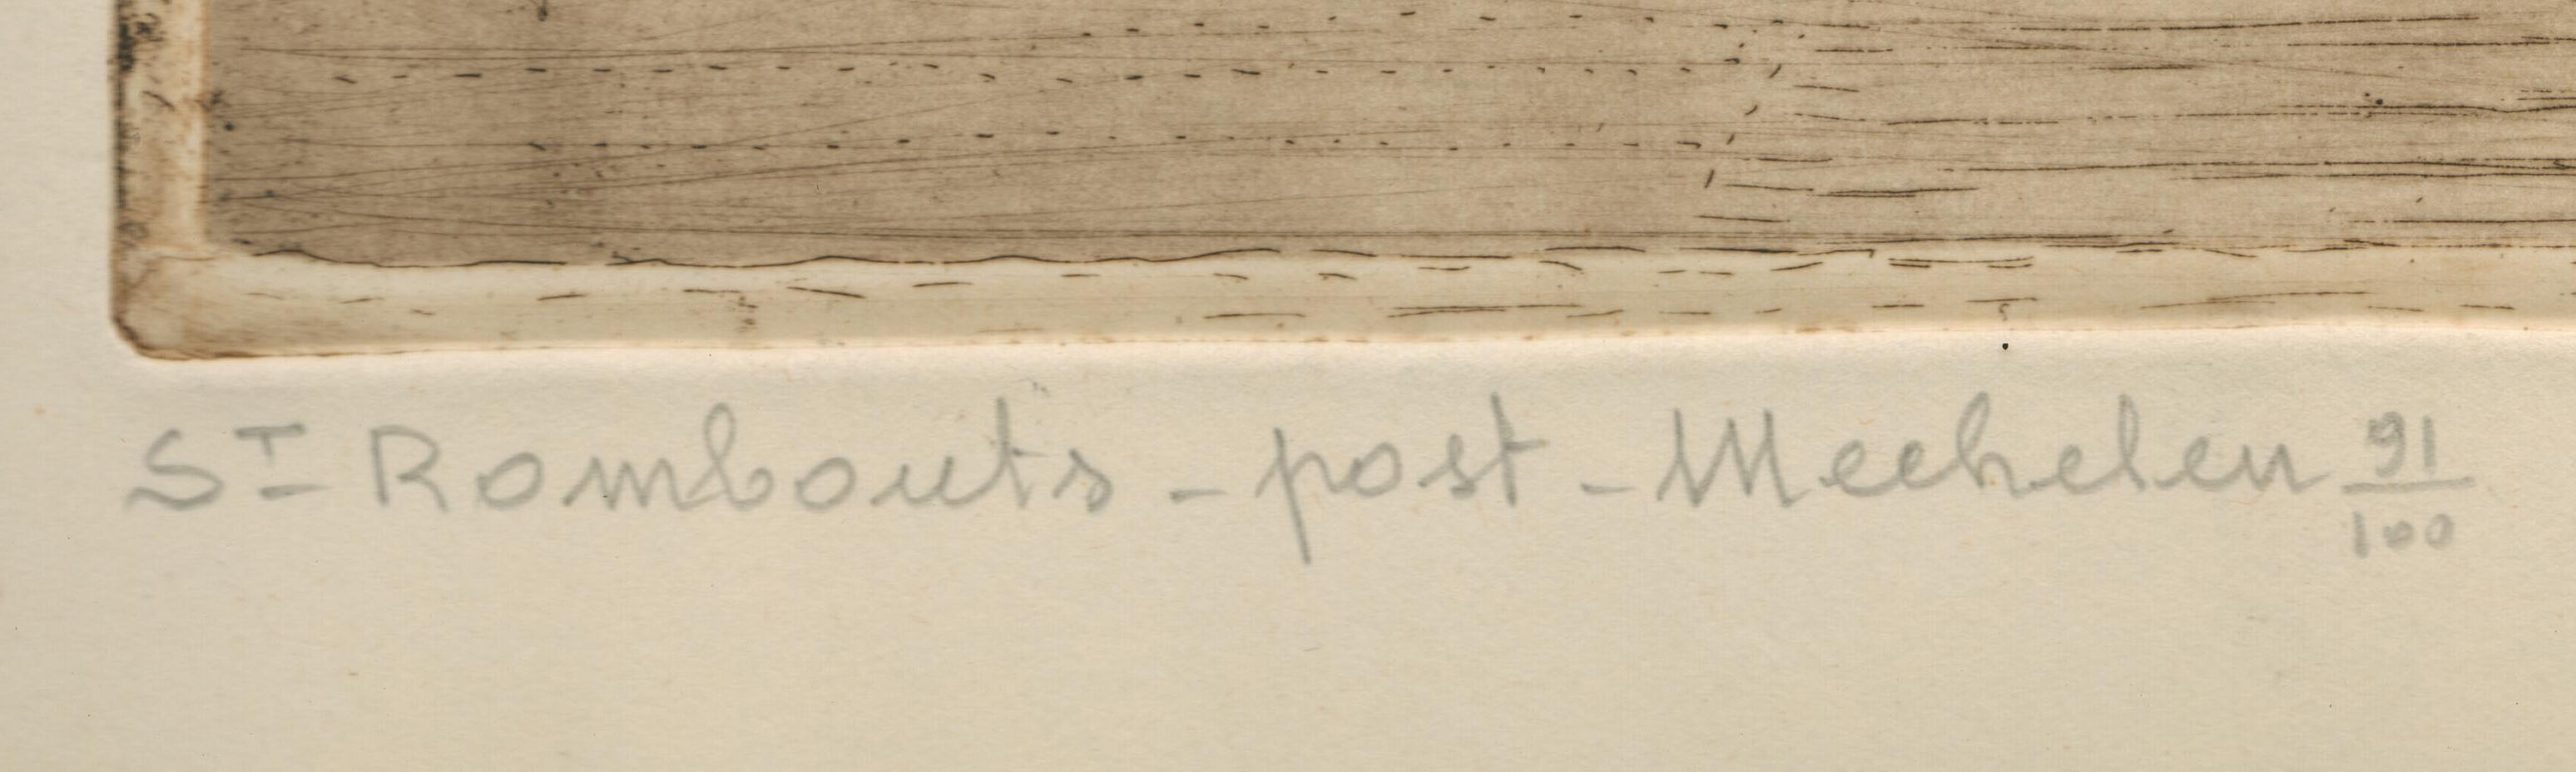 St Rombouts - post - Mechelen 91/100